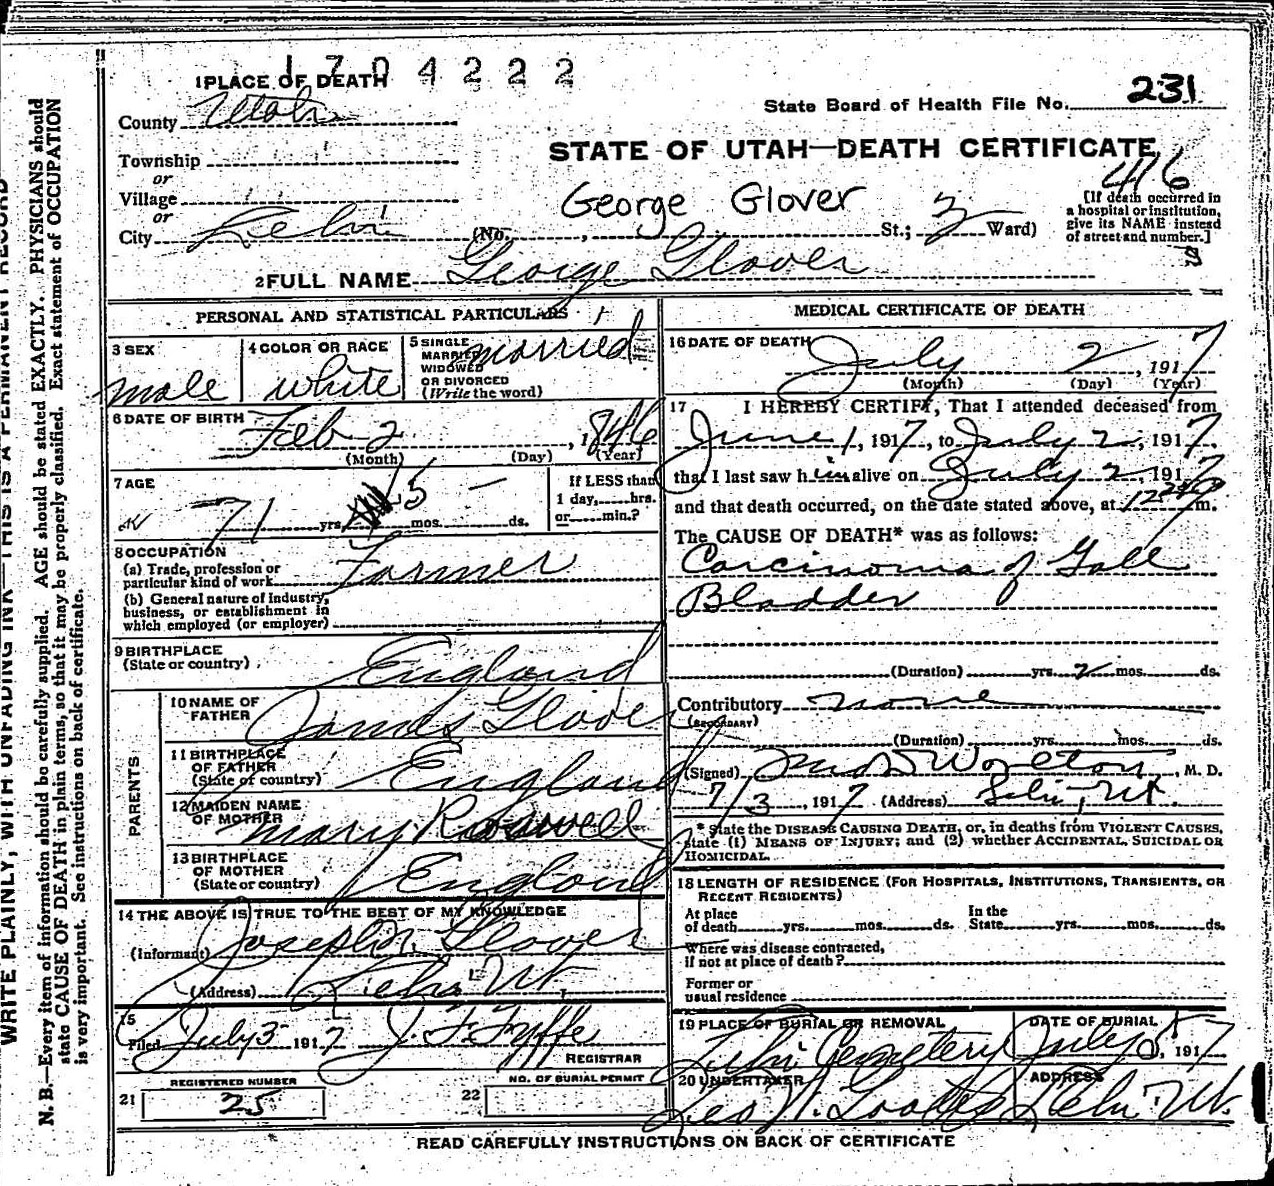 1704222
1 PLACE OF DEATH
State Board of Health File No. 231
County Utah
STATE OF UTAH—DEATH CERTIFICATE
416
Township
or
Village
or
City Lehi (No. , St.; 3 Ward)
George Glover
[If death occurred in
a hospital or institution,
give its NAME instead
of street and number.]
2 FULL NAME George Glover
PERSONAL AND STATISTICAL PARTICULARS
3 SEX
male
4 COLOR OR RACE
white
5 SINGLE
MARRIED
WIDOWED
OR DIVORCED
(Write the word)
married
6 DATE OF BIRTH
Feb 2, 1846
(Month) (Day) (Year)
7 AGE
71 yrs. 5 mos. – ds.
If LESS than
1 day, hrs.
or min.?
8 OCCUPATION
(a) Trade, profession or
particular kind of work Farmer
(b) General nature of Industry,
business, or establishment in
which employed (or employer)
9 BIRTHPLACE
(State or country) England
PARENTS
10 NAME OF
FATHER James Glover
11 BIRTHPLACE
OF FATHER
(State or country) England
12 MAIDEN NAME
OF MOTHER Mary
13 BIRTHPLACE
OF MOTHER
(State or country) England
14 THE ABOVE IS TRUE TO THE BEST OF MY KNOWLEDGE
(Informant) Joseph Glover
(Address) Lehi Ut.
15
Filed July 3 1917 J. F. Fyffe
REGISTRAR
REGISTERED NUMBER
21 25
NO. OF BURIAL PERMIT
22
MEDICAL CERTIFICATE OF DEATH
16 DATE OF DEATH
July 2, 1917
(Month) (Day) (Year)
17 I HEREBY CERTIFY, That I attended deceased from
June 1, 1917, to July 2, 1917,
that I last saw him alive on July 2, 1917
and that death occurred, on the date stated above, at m.
The CAUSE OF DEATH* was as follows:
Carcinoma of Gall
Bladder
(Duration) yrs. 2 mos. ds.
Contributory none
(SECONDARY)
(Duration) yrs. mos. ds.
(Signed) Worlton, M. D.
7/3, 1917 (Address) Lehi, Ut.
* State the DISEASE CAUSING DEATH, or, in deaths from VIOLENT CAUSES,
state (1) MEANS OF INJURY; and (2) whether ACCIDENTAL, SUICIDAL OR
HOMICIDAL.
18 LENGTH OF RESIDENCE (FOR HOSPITALS, INSTITUTIONS, TRANSIENTS, OR
RECENT RESIDENTS)
At place
of death yrs. mos. ds.
In the
State yrs. mos. ds.
Where was disease contracted,
if not at place of death?
Former or
usual residence
19 PLACE OF BURIAL OR REMOVAL
Lehi Cemetery
DATE OF BURIAL
July 5, 1917
20 UNDERTAKER
Geo N.
ADDRESS
Lehi Ut.
READ CAREFULLY INSTRUCTIONS ON BACK OF CERTIFICATE
WRITE PLAINLY, WITH UNFADING INK—THIS IS A PERMANENT RECORD
N. B.—Every item of information should be carefully supplied. AGE should be stated EXACTLY. PHYSICIANS should
state CAUSE OF DEATH in plain terms, so that it may be properly classified. Exact statement of OCCUPATION
is very important. See instructions on back of certificate.